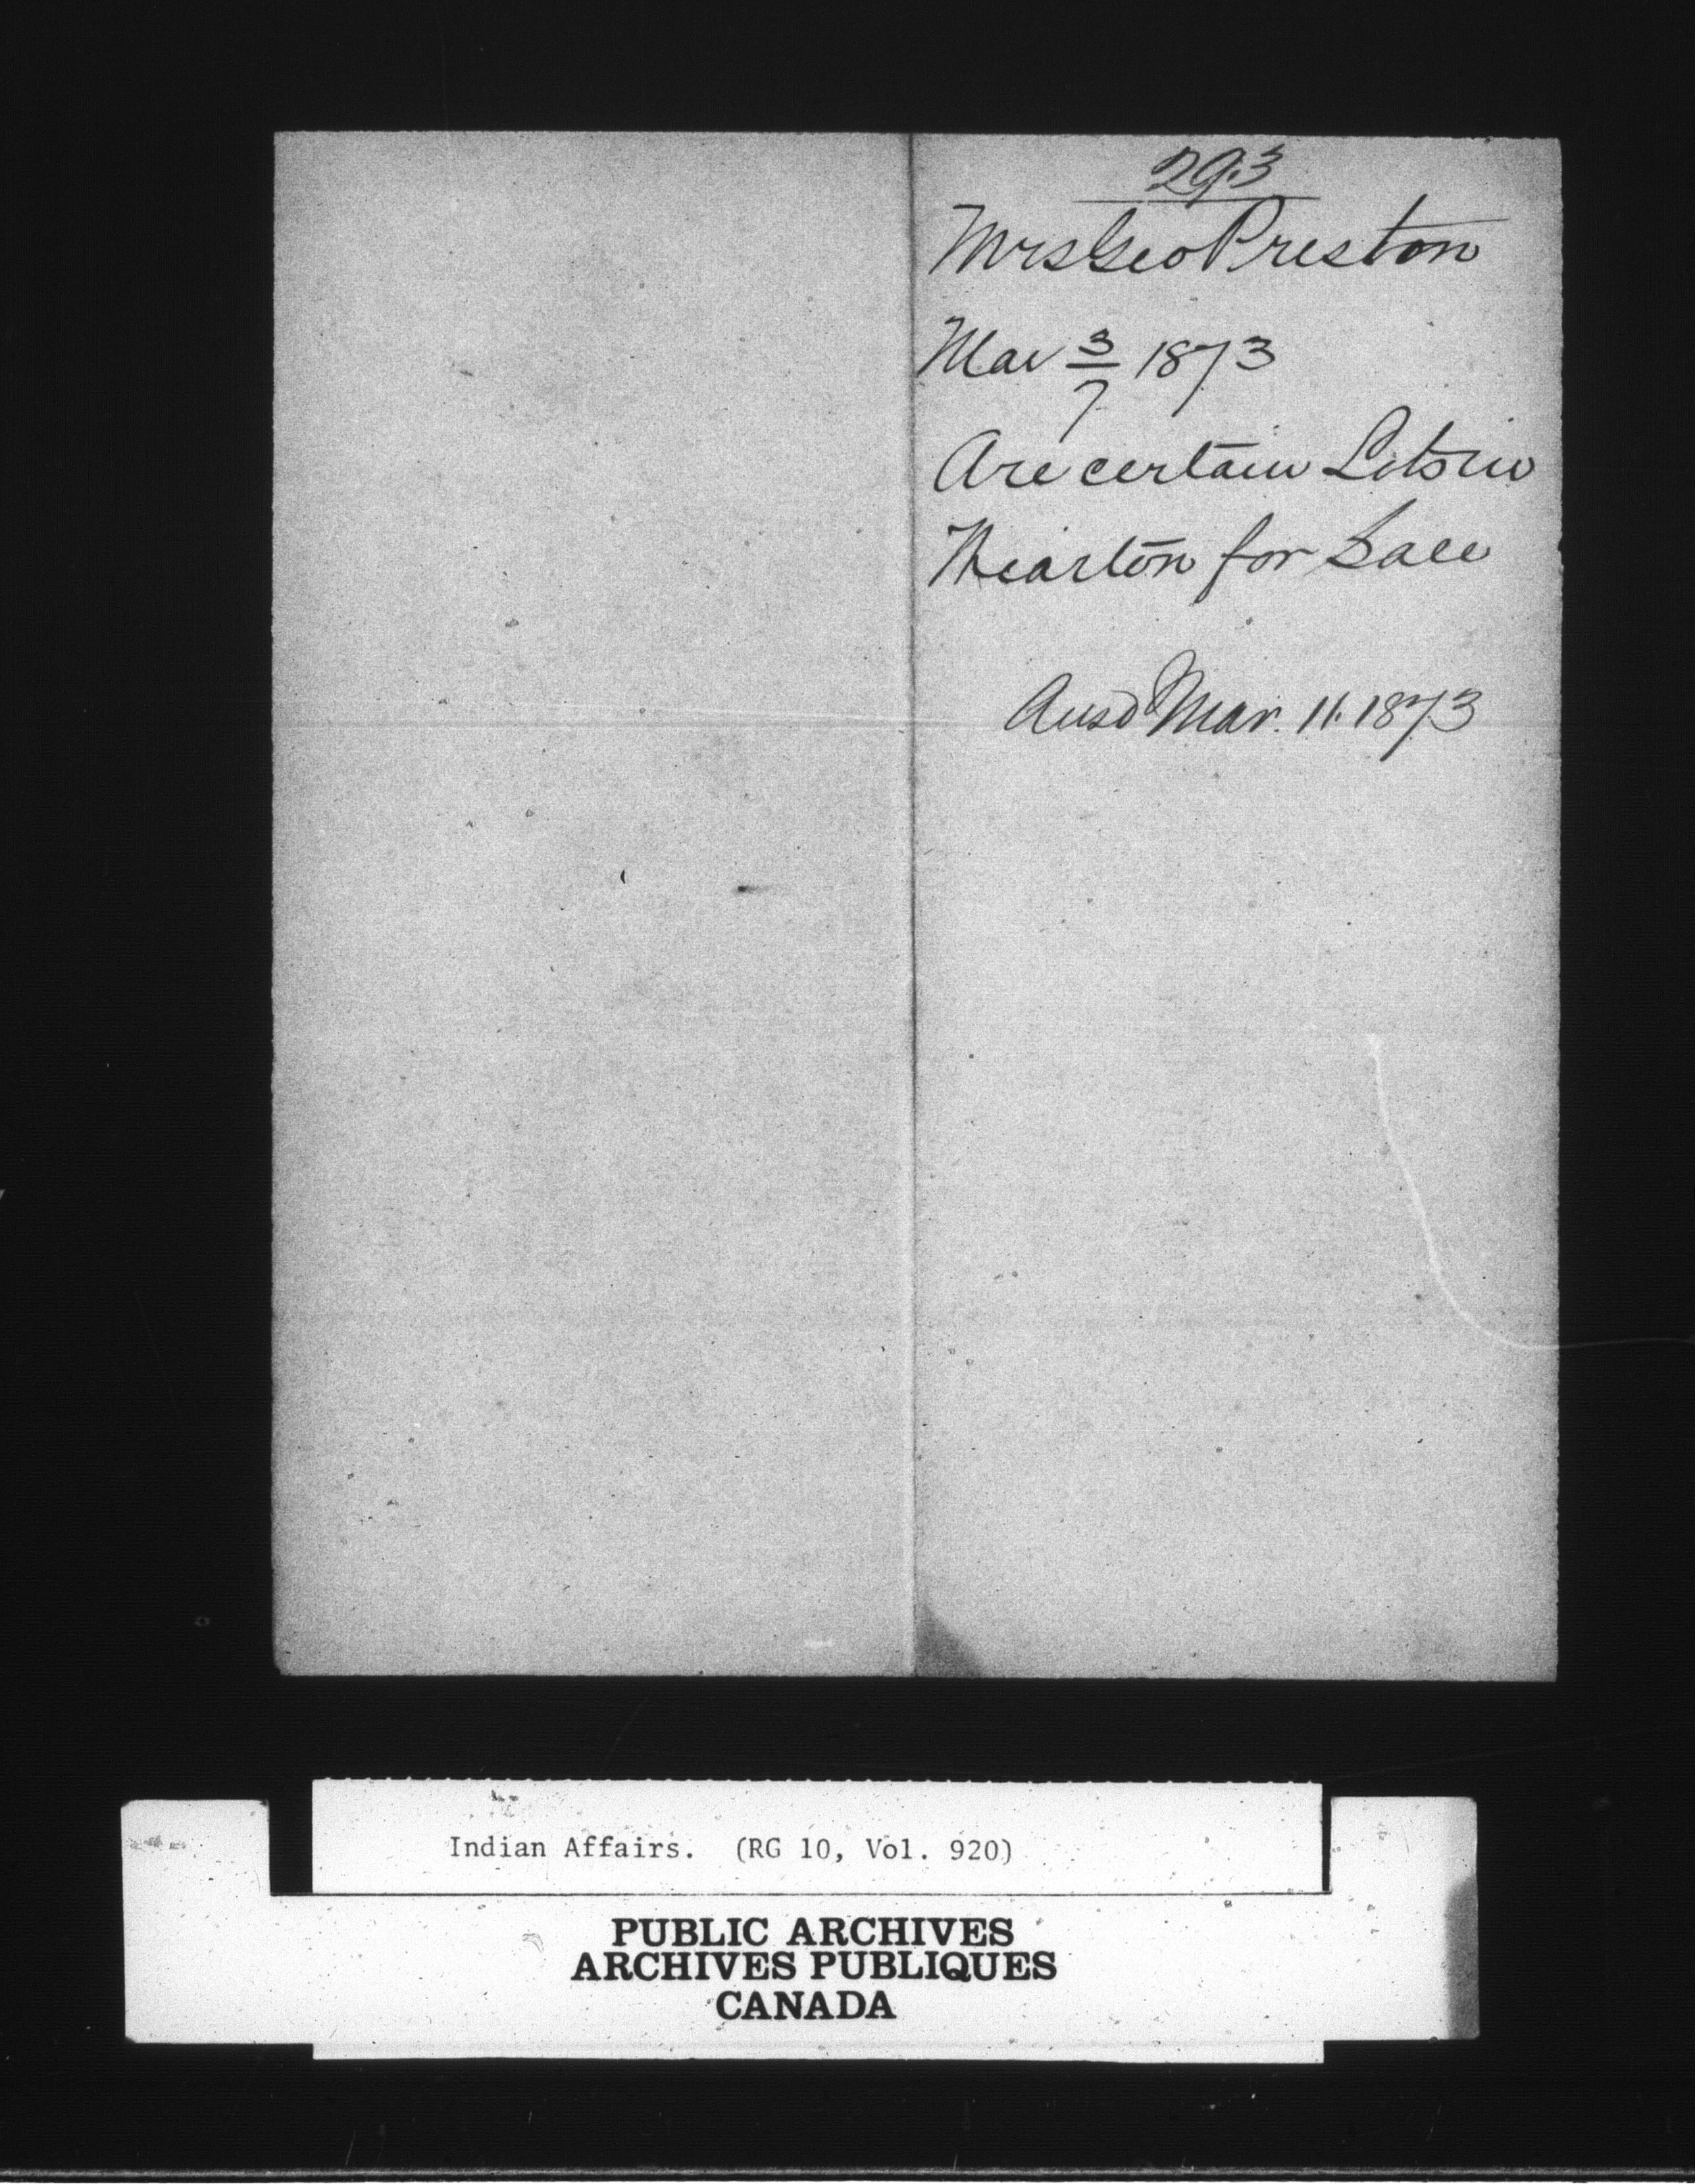 293
Mrs Geo Preston
Mar 3/7 1873
Are certain Lots in
Wiarton for Sale
Ansd Mar. 11. 1873
Indian Affairs. (RG 10, Vol. 920)
PUBLIC ARCHIVES
ARCHIVES PUBLIQUES
CANADA